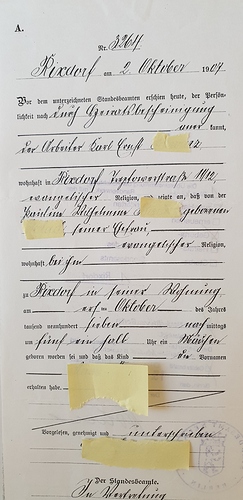 A.
Nr. 3264
Rixdorf am 2. Oktober 1907
Vor dem unterzeichneten Standesbeamten erschien heute, der Persön-
lichkeit nach durch Heiratsbescheinigung
aner kannt,
der Arbeiter Karl Ernst
wohnhaft in Rixdorf 11/12,
evangelischer Religion, und zeigte an, daß von der
Pauline Wilhelmine geborenen
seiner Ehefrau,
evangelischer Religion,
wohnhaft bei ihm
zu Rixdorf in seiner Wohnung
am ersten Oktober des Jahres
tausend neunhundert sieben nach mittags
um fünf ein halb Uhr ein Mädchen
geboren worden sei und daß das Kind die Vornamen
erhalten habe.
Vorgelesen, genehmigt und unterschrieben
Der Standesbeamte.
In Vertretung